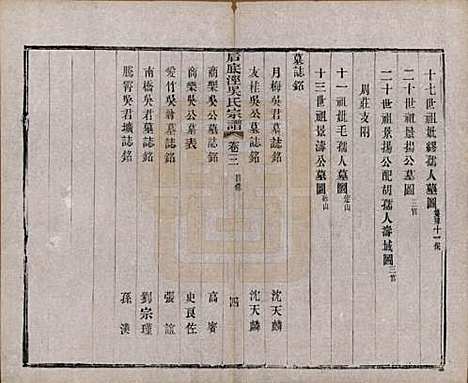 十七世祖妣繆孺人墓圖
二十世祖景揚公墓圖三官
二十世祖景揚公配胡孺人壽域圖三官
周莊支附
十一祖妣毛孺人墓圖
十三世祖景濤公墓圖
墓誌銘
月梅吳君墓誌銘 沈天麟
友桂吳公墓誌銘 沈天麟
后底涇吳氏宗譜 卷三 目錄 四
商樂吳公墓誌銘 高賓
商樂吳公墓表 史良佐
愛竹吳君墓誌銘 張誼
南橋吳君墓誌銘 劉宗瑾
騰霄吳君壙誌銘 孫漢